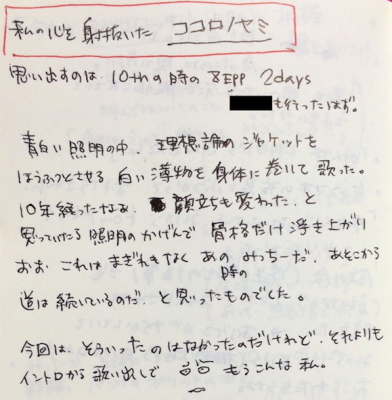 私の心を射抜いた ココロノセミ
思い出すのは、10thの時の ZEPP 2days
も行ったはず。
青白い照明の中、理想論のジャケットを
ほうふつとさせる 白い薄物を身体に巻いて歌った。
10年経ったなぁ、顔立ちも変わった、と
思っていたら照明のかげんで 骨格だけ浮き上がり
おお これは まぎれもなく あの みっちーだ、あそこから
時の
道は続いているのだ、と思ったものでした。
今回は、そういったのはなかったのだけれど、それよりも
イントロから歌い出しで もうこんな私。